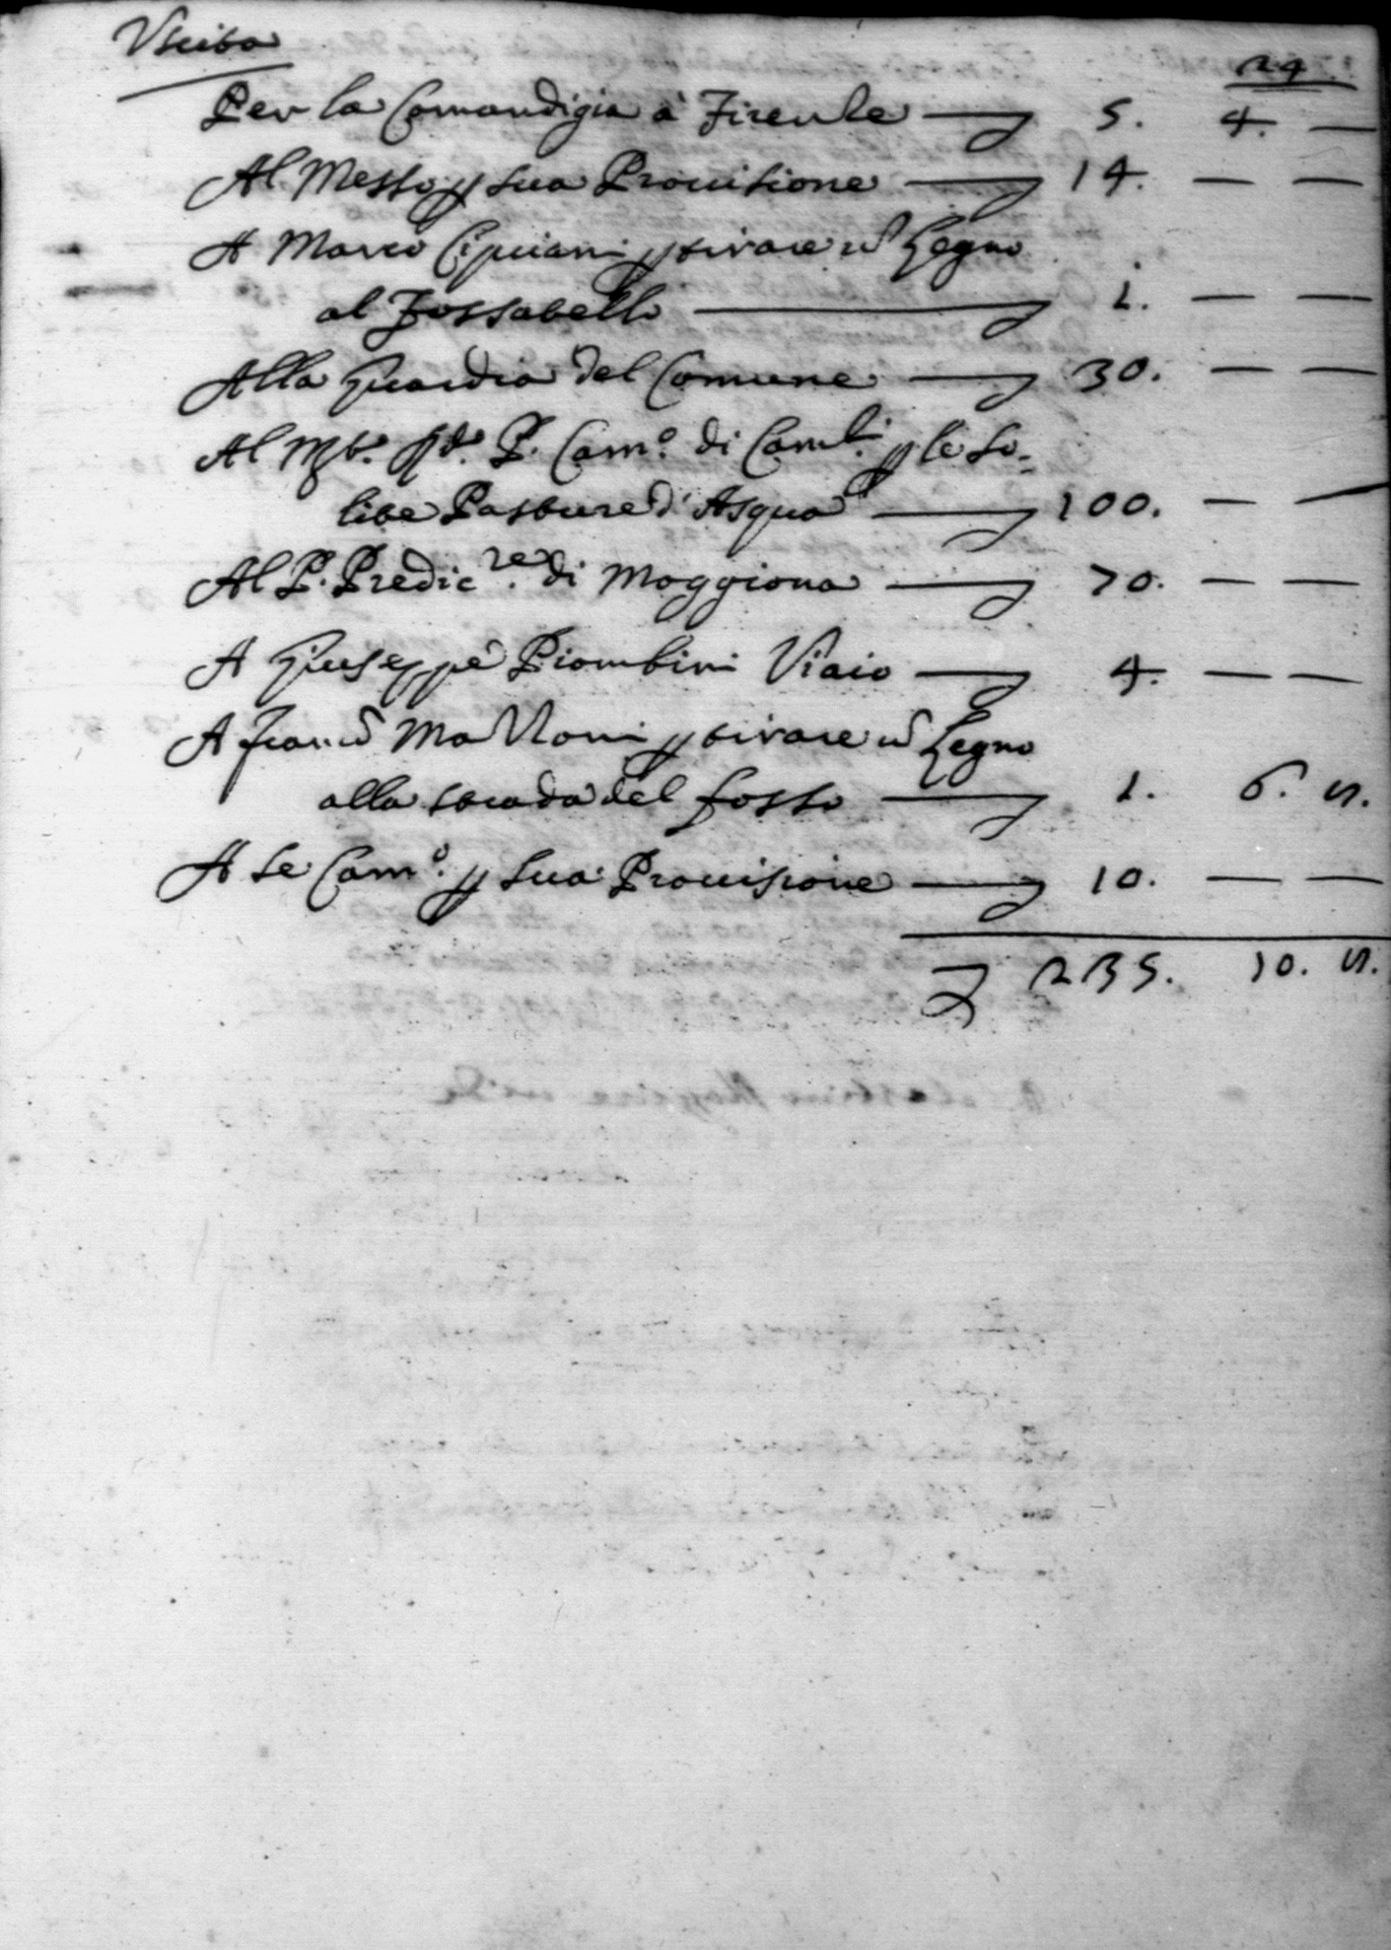 Uscita
29
Per la Comandigia à Firenze — 5. 4. —
Al Messo p sua Provisione — 14. — —
A Marco Cipriani p tirare u° Legno
al Fossatello — 1. — —
Alla Guardia del Comune — 30. — —
Al P. Cam.° di Camli. p le so=
lite Pasture d'Asqua — 100. — —
Al P. Predic.re di Moggiona — 70. — —
A Giuseppe Piombini Viaio — 4. — —
A Franc° Mazzoni p tirare u° Legno
alla strada del fosso — 1. 6. 8.
A Se Cam.° p sua Provisione — 10. — —
235. 10. 8.